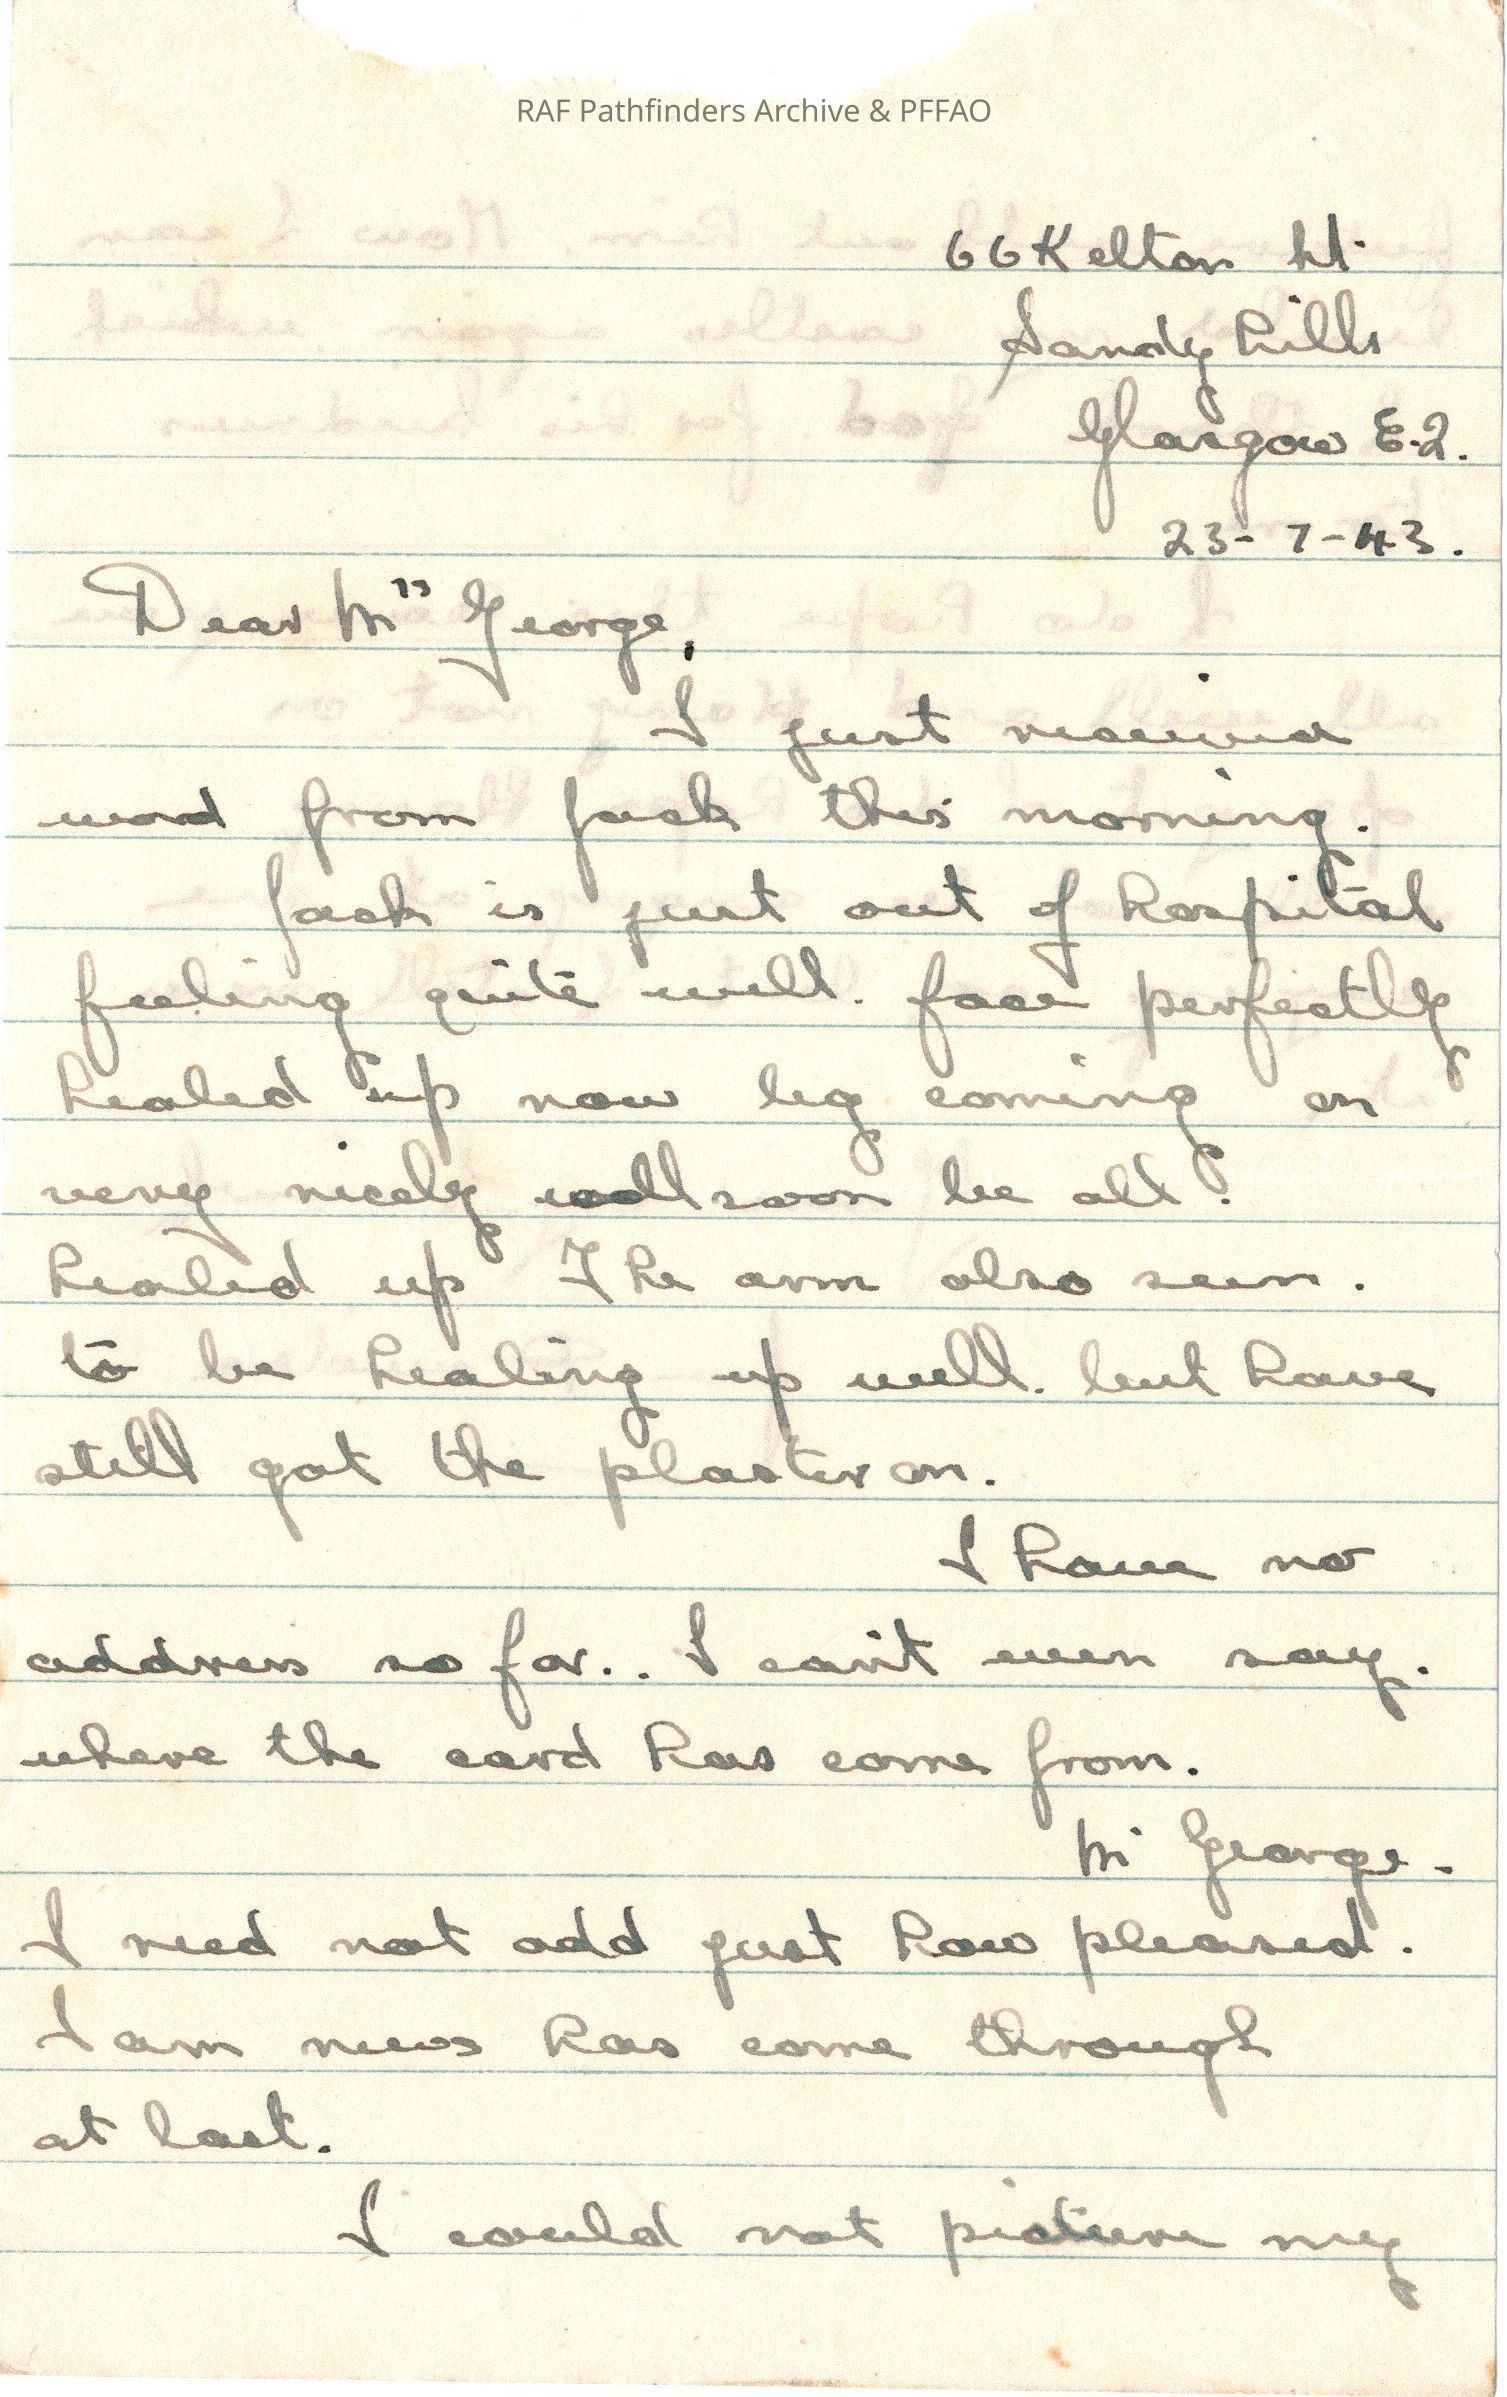 RAF Pathfinders Archive & PFFAO
66 Kelton St.
Sandyhills
Glasgow E.2.
23-7-43.
Dear Mrs George,
I just received
word from Jack this morning.
Jack is just out of hospital
feeling quite well. face perfectly
healed up now leg coming on
very nicely will soon be all.
healed up The arm also seem.
to be healing up well. but have
still got the plaster on.
I have no
address so far.. I can't even say.
where the card has come from.
Mr George-
I need not add just how pleased.
I am news has come through
at last.
I could not picture my